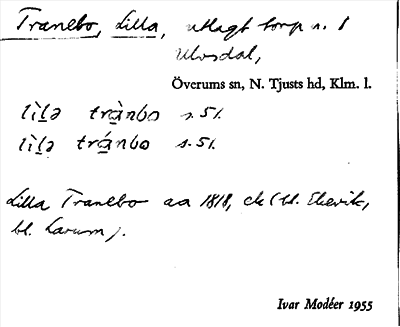 Tranebo, Lilla, utlagt torp u.
Ulvsdal,
Överums sn, N. Tjusts hd, Klm. l.
lìlə trànbo s. 51.
lìlə tránbo s. 51.
Lilla Tranebo aa 1818, ck (bl. Ekevik,
bl. Larum).
Ivar Modéer 1955